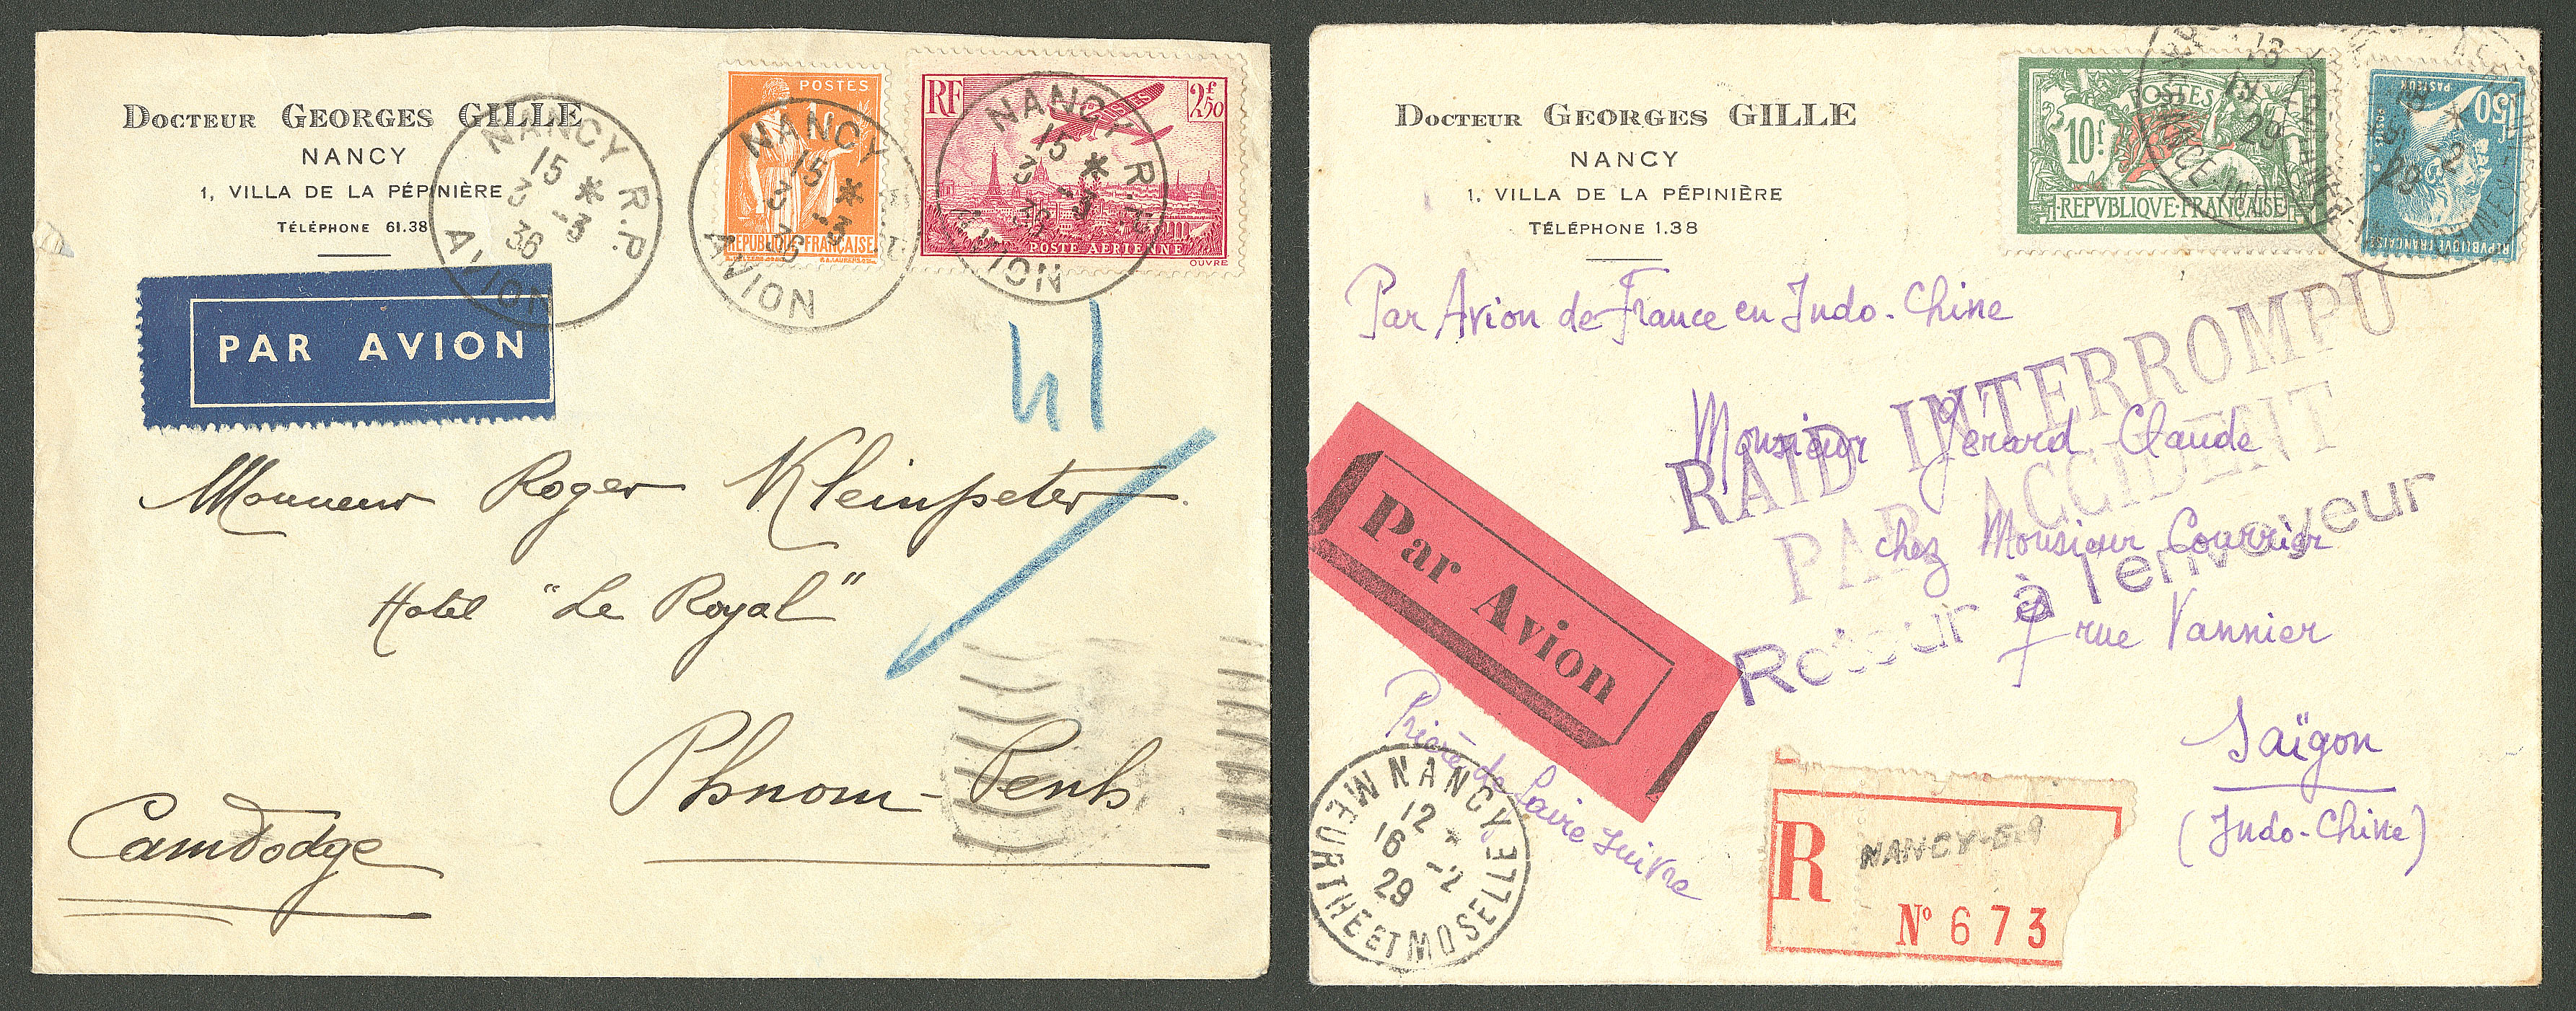 DOCTEUR GEORGES GILLE
NANCY
1, VILLA DE LA PÉPINIÈRE
TÉLÉPHONE 61.38
PAR AVION
NANCY R.P.
15 *
3 -3
36
AVION
POSTES
1f
REPUBLIQUE FRANÇAISE
NANCY
15 *
3 -3
36
AVION
RF
POSTES
2f50
POSTE AERIENNE
OUVRE
NANCY R.P.
15 *
3 -3
36
AVION
41
Monsieur Roger Kleinpeter
Hotel "Le Royal"
Phnom-Penh
Cambodge
DOCTEUR GEORGES GILLE
NANCY
1, VILLA DE LA PÉPINIÈRE
TÉLÉPHONE 1.38
POSTES
10f
REPVBLIQVE FRANÇAISE
1f50
PASTEUR
REPUBLIQUE FRANÇAISE
Par Avion de France en Indo-Chine
RAID INTERROMPU
PAR ACCIDENT
Retour à l'envoyeur
Monsieur Gérard Claude
chez Monsieur Courrier
7 rue Vannier
Saïgon
(Indo-Chine)
Par Avion
Prière de faire suivre
NANCY
12 *
16 -2
29
MEURTHE ET MOSELLE
R
NANCY-
N° 673